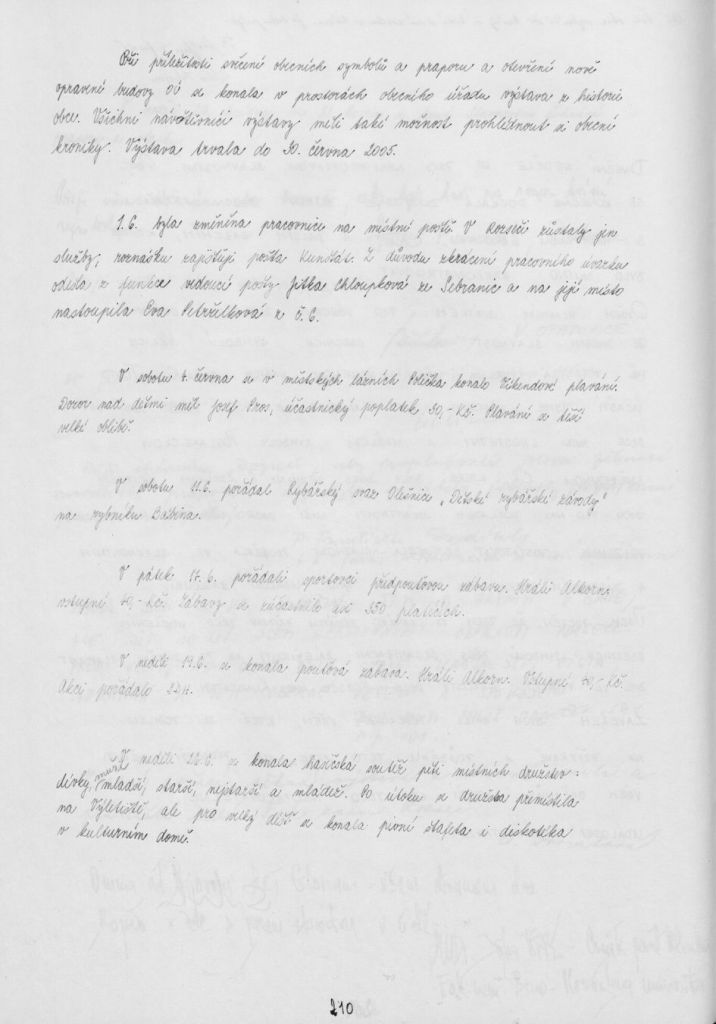 Při příležitosti svěcení obecních symbolů a praporu a otevření nově
opravené budovy OÚ se konala v prostorách obecního úřadu výstava z historie
obce. Všichni návštěvníci výstavy měli také možnost prohlédnout si obecní
kroniky. Výstava trvala do 30. června 2005.
1.6. byla změněna pracovnice na místní poště. V Rozseči zůstaly jen
služby, roznášku zajišťuje pošta Kunštát. Z důvodu zkrácení pracovního úvazku
odešla z funkce vedoucí pošty Jitka Chloupková ze Sebranic a na její místo
nastoupila Eva Petrželková z č. 6.
V sobotu 4. června se v městských lázních Polička konalo Víkendové plavání.
Dozor nad dětmi měl Josef Pros, účastnický poplatek 50,- Kč. Plavání se těší
velké oblibě.
V sobotu 11.6. pořádal Rybářský svaz Olešnice „Dětské rybářské závody"
na rybníku Babina.
V pátek 17.6. pořádali sportovci předpouťovou zábavu. Hráli Alkorn.
vstupné 70,- Kč. Zábavy se zúčastnilo asi 350 platících.
V neděli 19.6. se konala pouťová zábava. Hráli Alkorn. Vstupné 70,- Kč.
Akci pořádalo
V neděli 26.6. se konala hasičská soutěž pěti místních družstev -
dívky, muži mladší, starší, nejstarší a mládež. Po útoku se družstva přemístila
na Výletiště, ale pro velký déšť se konala pivní štafeta i diskotéka
v kulturním domě.
210